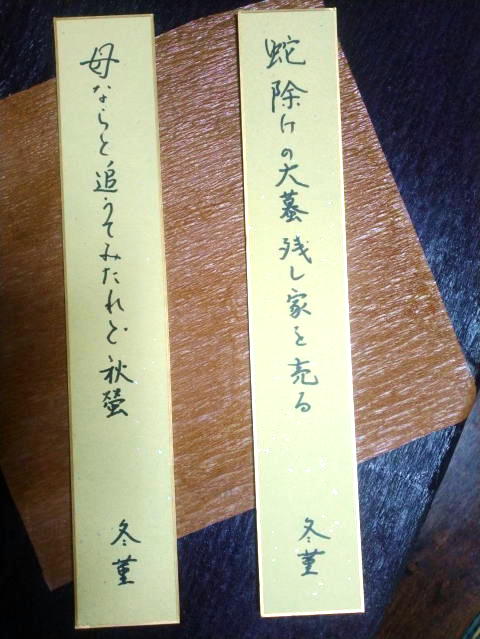 蛇除けの大蟇残し家を売る
冬菫
母ならと追うてみたれど秋蛍
冬菫